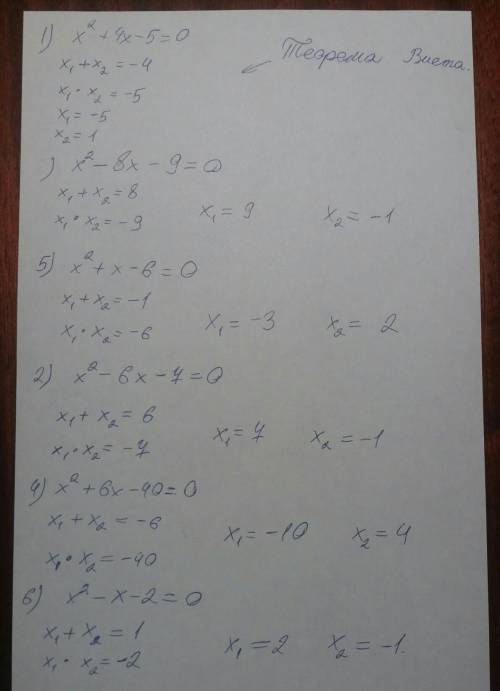 1) x² + 4x - 5 = 0
Теорема Виета.
x₁ + x₂ = -4
x₁ · x₂ = -5
x₁ = -5
x₂ = 1
) x² - 8x - 9 = 0
x₁ + x₂ = 8
x₁ · x₂ = -9 x₁ = 9 x₂ = -1
5) x² + x - 6 = 0
x₁ + x₂ = -1
x₁ · x₂ = -6 x₁ = -3 x₂ = 2
2) x² - 6x - 7 = 0
x₁ + x₂ = 6
x₁ · x₂ = -7 x₁ = 7 x₂ = -1
4) x² + 6x - 40 = 0
x₁ + x₂ = -6
x₁ · x₂ = -40 x₁ = -10 x₂ = 4
6) x² - x - 2 = 0
x₁ + x₂ = 1
x₁ · x₂ = -2 x₁ = 2 x₂ = -1.